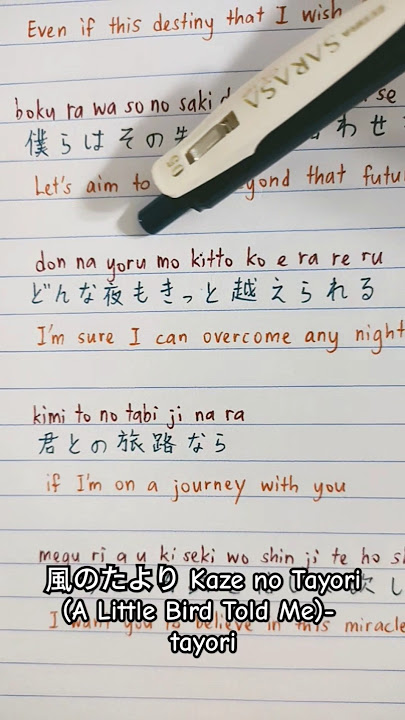 Even if this destiny that I wish
SARASA
boku ra wa so no saki se
僕らはその わせ
Let's aim to that
don na yoru mo kitto ko e ra re ru
どんな夜もきっと越えられる
I'm sure I can overcome any night
kimi to no tabi ji na ra
君との旅路なら
if I'm on a journey with you
megu ri a u ki seki wo shin ji te ho
風のたより Kaze no Tayori
(A Little Bird Told Me)-
tayori
I want you to believe in this miracle